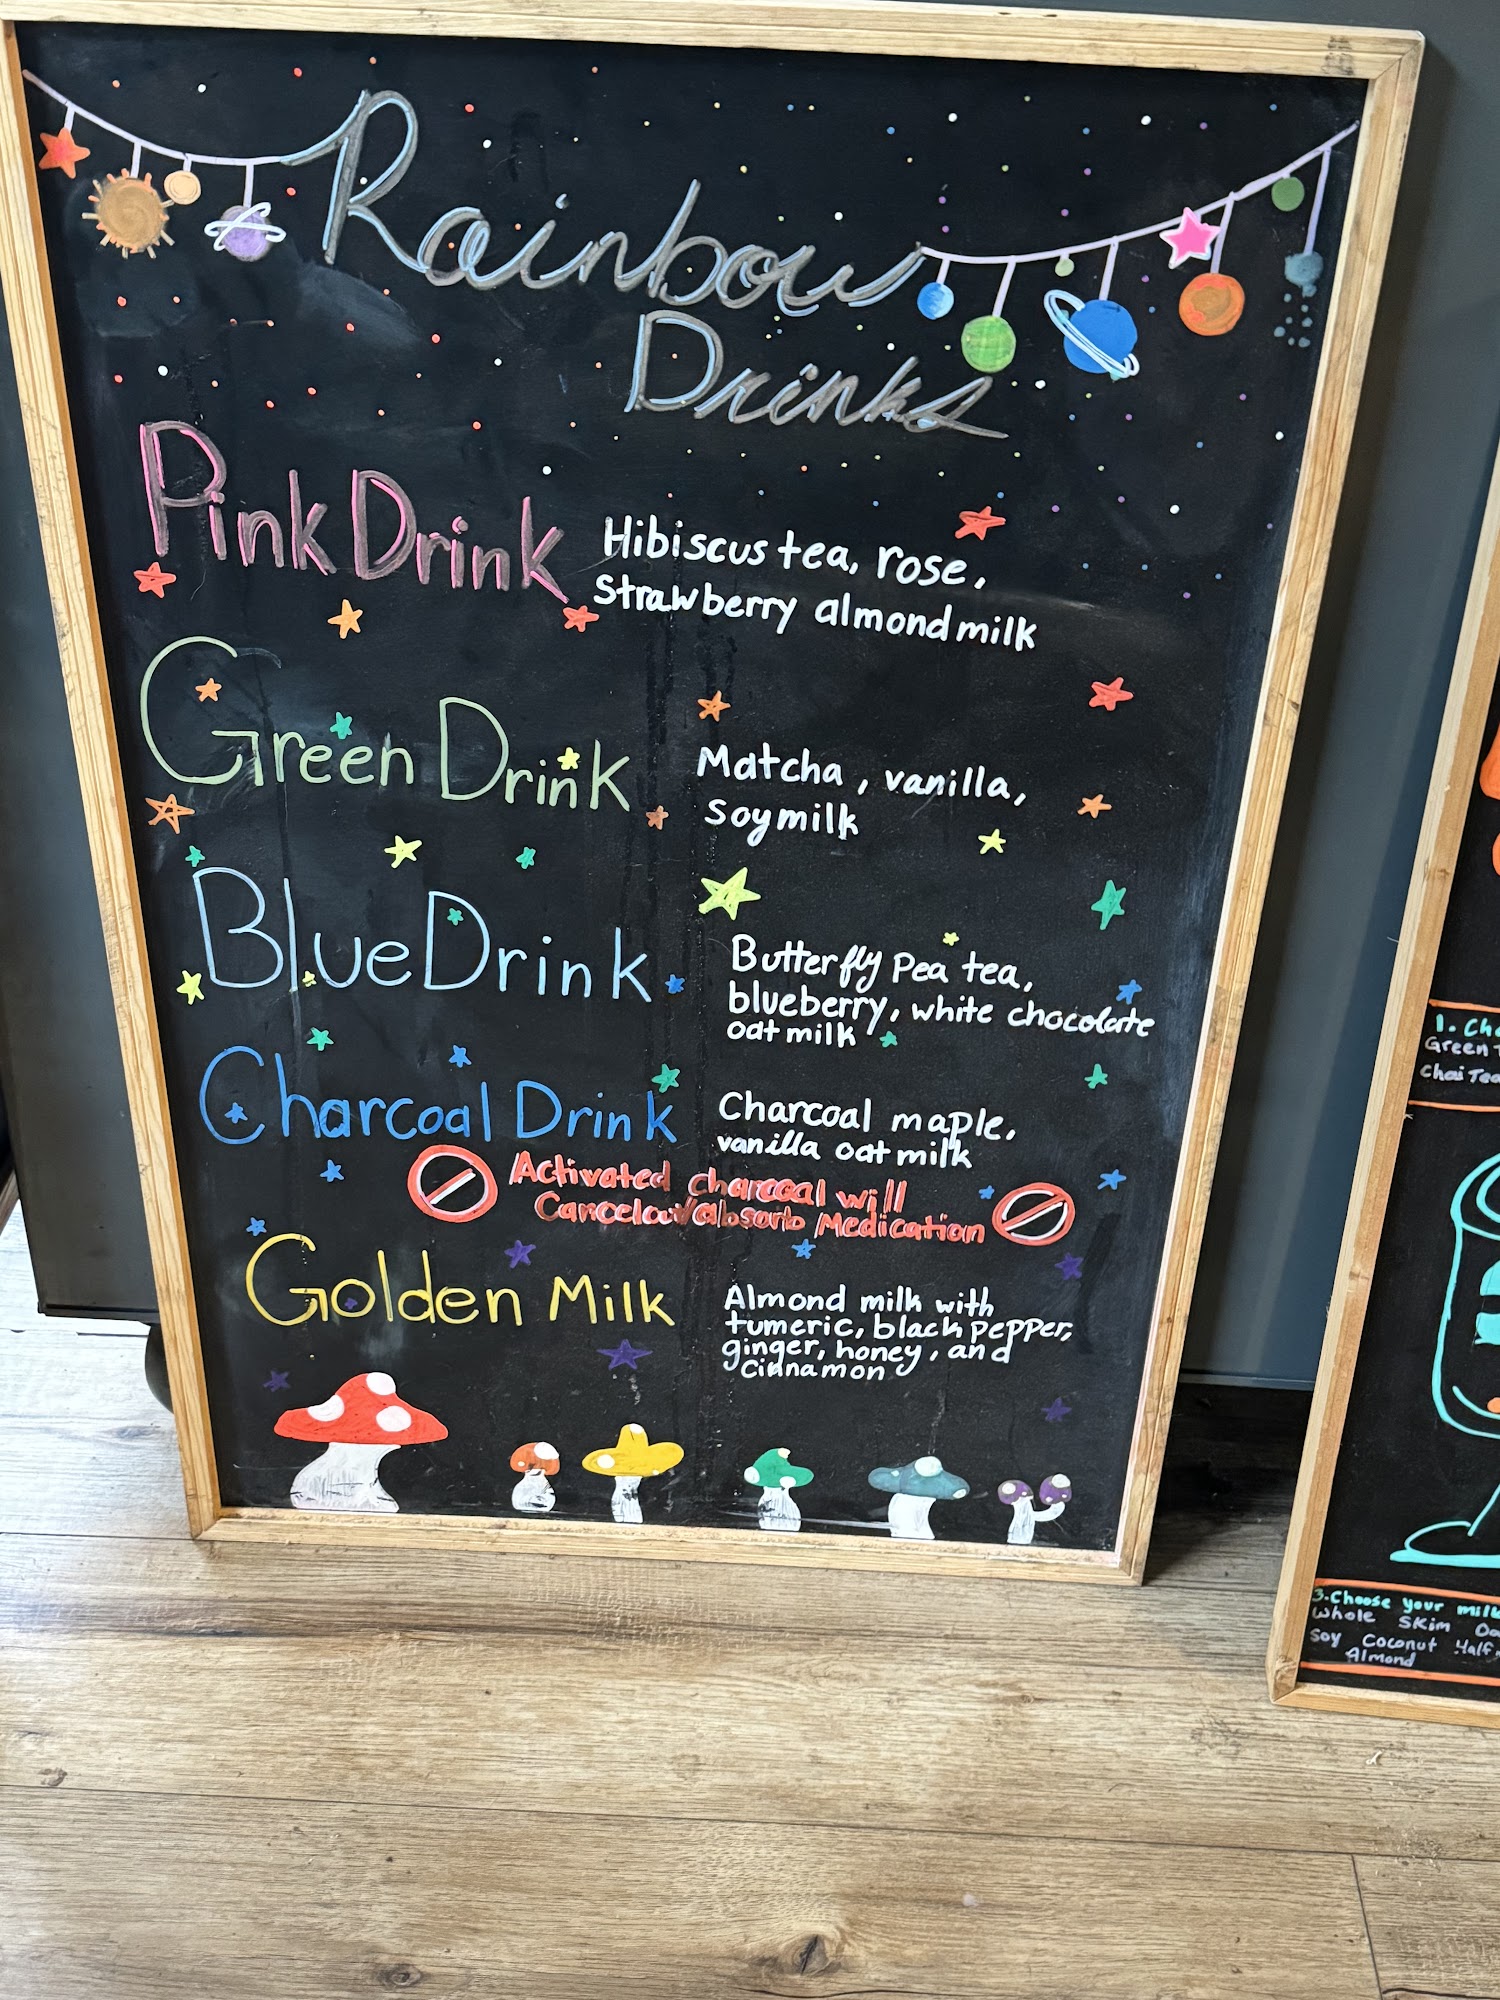 Rainbow
Drinks
Pink Drink
Hibiscus tea, rose,
Strawberry almond milk
Green Drink
Matcha, vanilla,
Soy milk
Blue Drink
Butterfly Pea tea,
blueberry, white chocolate
oat milk
Charcoal Drink
Charcoal maple,
vanilla oat milk
Activated charcoal will
Cancel out/absorb Medication
Golden Milk
Almond milk with
tumeric, black pepper,
ginger, honey, and
cinnamon
1. Ch
Green T
Chai Tea
3. Choose your milk
Whole Skim Oa
Soy Coconut Half
Almond